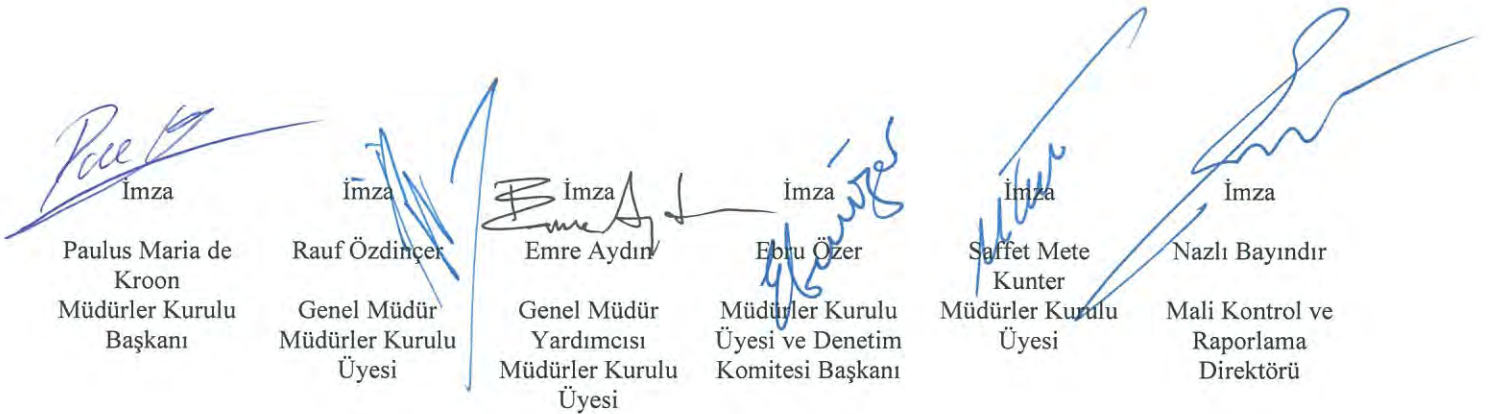 İmza
Paulus Maria de
Kroon
Müdürler Kurulu
Başkanı
İmza
Rauf Özdinçer
Genel Müdür
Müdürler Kurulu
Üyesi
İmza
Emre Aydın
Emre Aydın
Genel Müdür
Yardımcısı
Müdürler Kurulu
Üyesi
İmza
Ebru Özer
Müdürler Kurulu
Üyesi ve Denetim
Komitesi Başkanı
İmza
Saffet Mete
Kunter
Müdürler Kurulu
Üyesi
İmza
Nazlı Bayındır
Mali Kontrol ve
Raporlama
Direktörü